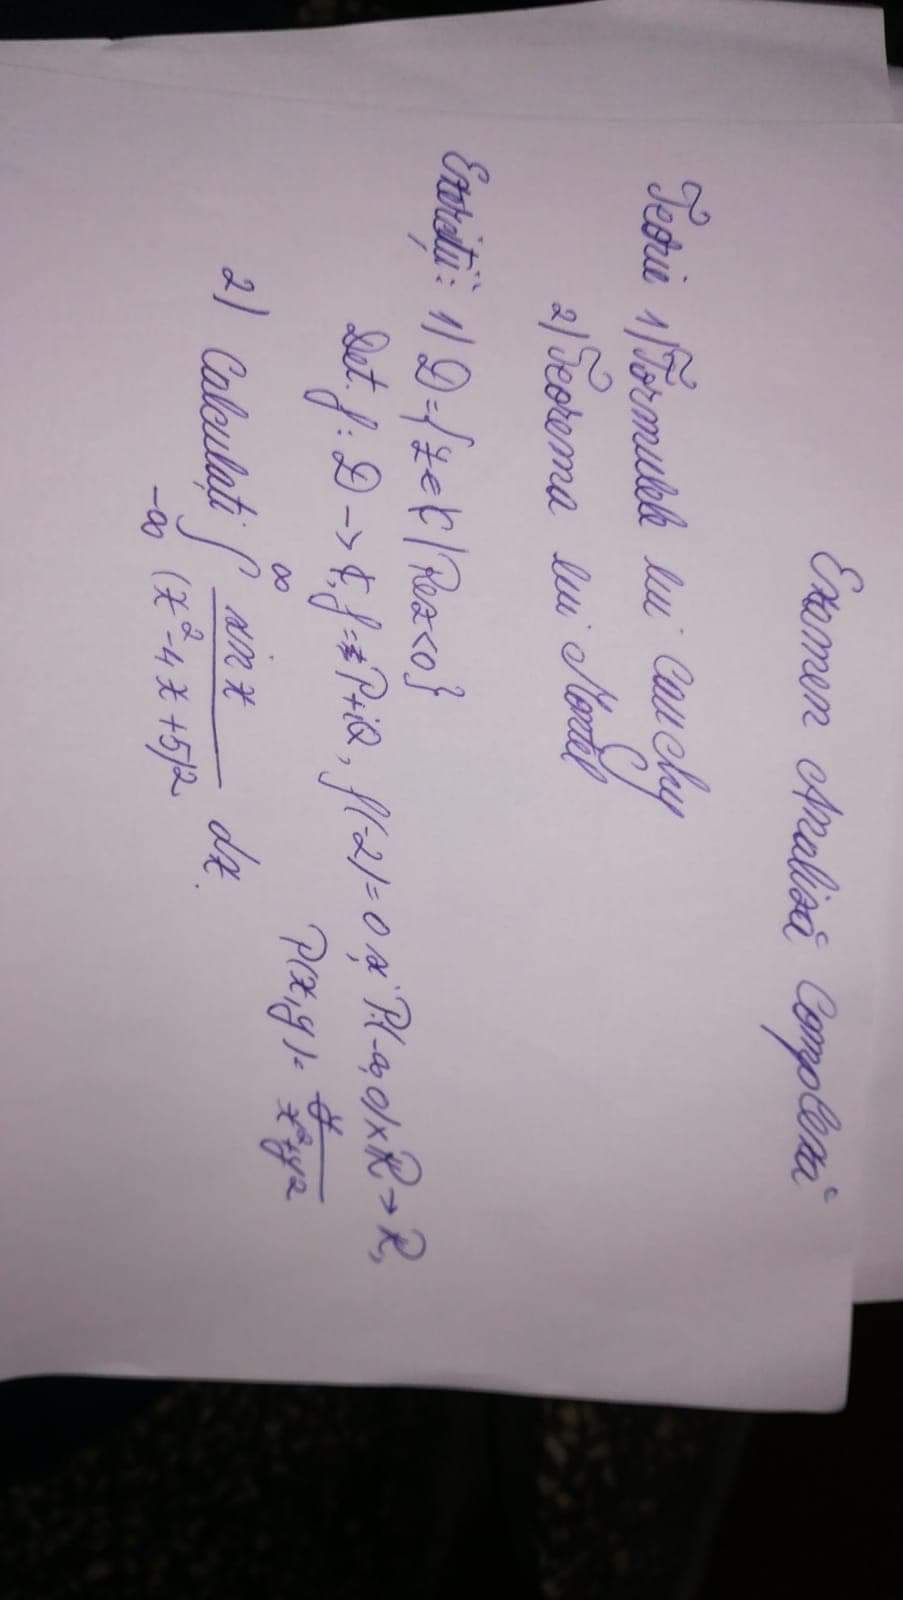 Examen Analiză Complexă
Teorie 1) Formulele lui Cauchy
2) Teorema lui Montel
Exerciții: 1) D = {z ∈ ℂ | Re z < 0}
Det. f: D → ℂ, f = P + iQ, f(-2) = 0 și P: (-∞, 0) x ℝ → ℝ,
P(x, y) = y / (x² + y²)
2) Calculați ∫_{-∞}^{∞} sin x / (x² - 4x + 5)² dx.